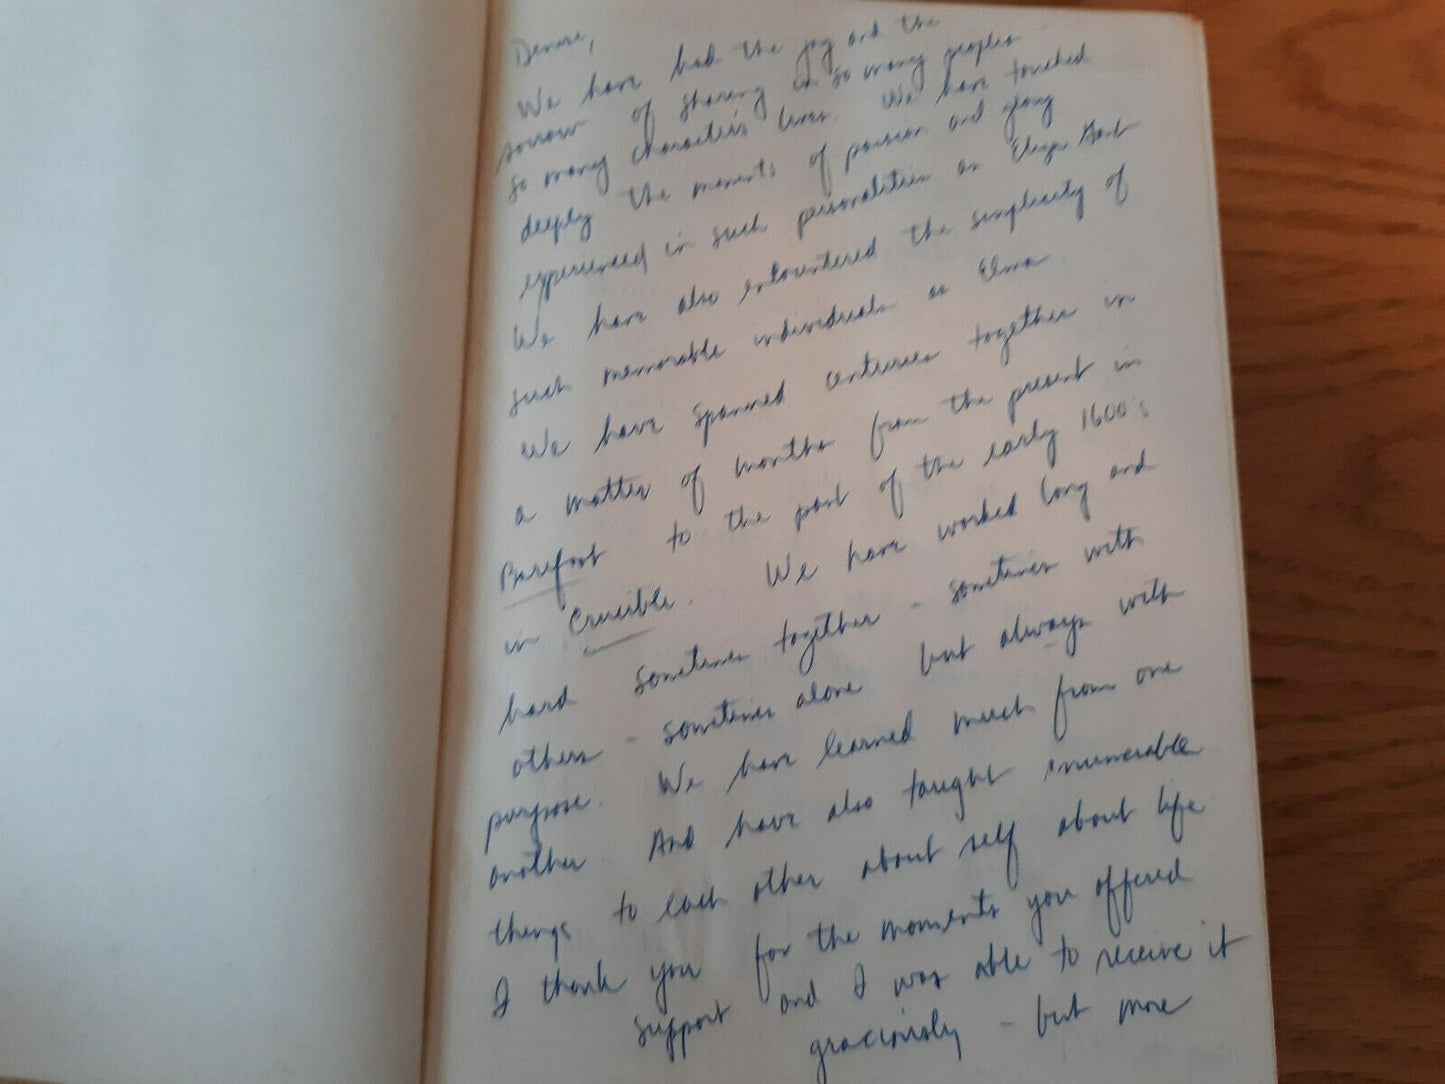 Denise,
We have had the joy and the
sorrow of sharing in so many peoples -
so many character's lives. We have touched
deeply the moments of passion and glory
experienced in such personalities as Eliza Gant
We have also encountered the simplicity of
such memorable individuals as Elma.
We have spanned centuries together in
a matter of months from the present in
Barefoot to the past of the early 1600's
in Crucible. We have worked long and
hard sometimes together - sometimes with
others - sometimes alone but always with
purpose. We have learned much from one
another And have also taught innumerable
things to each other about self about life
I thank you for the moments you offered
support and I was able to receive it
graciously - but more